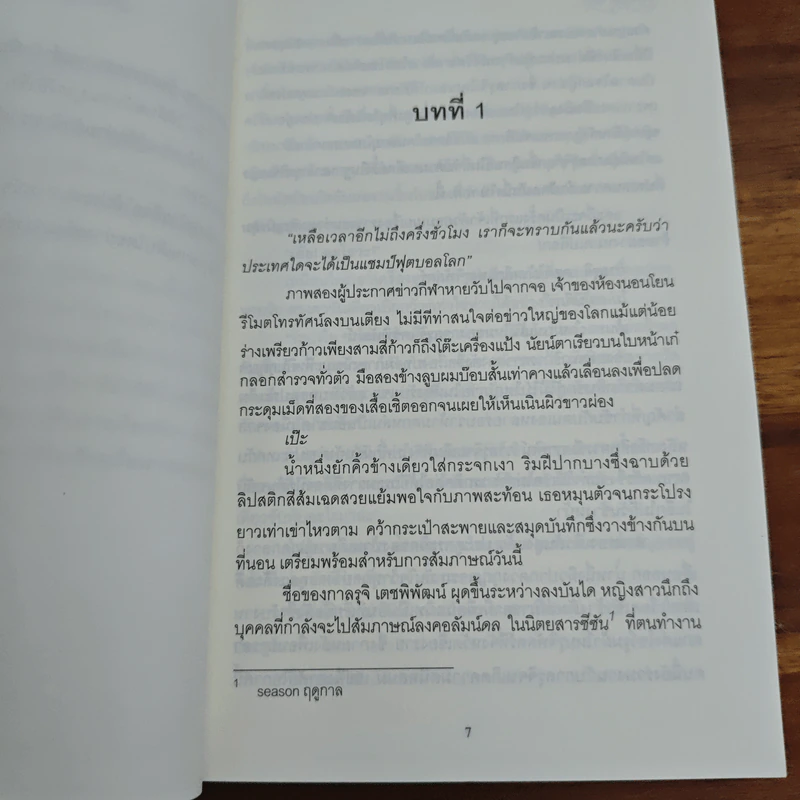 บทที่ 1
"เหลือเวลาอีกไม่ถึงครึ่งชั่วโมง เราก็จะทราบกันแล้วนะครับว่า
ประเทศใดจะได้เป็นแชมป์ฟุตบอลโลก"
ภาพสองผู้ประกาศข่าวกีฬาหายวับไปจากจอ เจ้าของห้องนอนโยน
รีโมตโทรทัศน์ลงบนเตียง ไม่มีทีท่าสนใจต่อข่าวใหญ่ของโลกแม้แต่น้อย
ร่างเพรียวก้าวเพียงสามสี่ก้าวก็ถึงโต๊ะเครื่องแป้ง นัยน์ตาเรียวบนใบหน้าเก๋
กลอกสำรวจทั่วตัว มือสองข้างลูบผมบ๊อบสั้นเท่าคางแล้วเลื่อนลงเพื่อปลด
กระดุมเม็ดที่สองของเสื้อเชิ้ตออกจนเผยให้เห็นเนินผิวขาวผ่อง
เป๊ะ
น้ำหนึ่งยักคิ้วข้างเดียวใส่กระจกเงา ริมฝีปากบางซึ่งฉาบด้วย
ลิปสติกสีส้มเฉดสวยแย้มพอใจกับภาพสะท้อน เธอหมุนตัวจนกระโปรง
ยาวเท่าเข่าไหวตาม คว้ากระเป๋าสะพายและสมุดบันทึกซึ่งวางข้างกันบน
ที่นอน เตรียมพร้อมสำหรับการสัมภาษณ์วันนี้
ชื่อของกาลรุจิ เตชพิพัฒน์ ผุดขึ้นระหว่างลงบันได หญิงสาวนึกถึง
บุคคลที่กำลังจะไปสัมภาษณ์ลงคอลัมน์ดล ในนิตยสารซีซัน¹ ที่ตนทำงาน
1 season ฤดูกาล
7